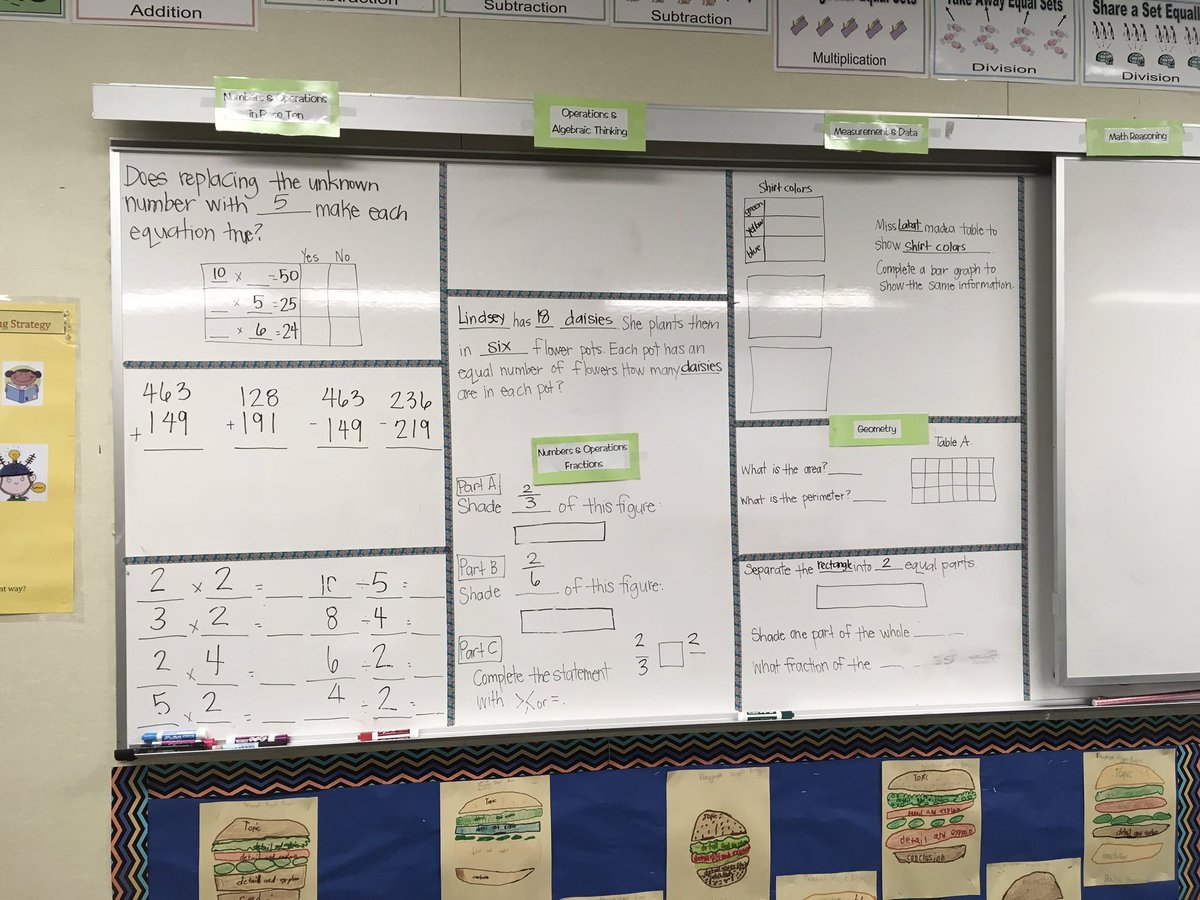 Addition
Subtraction
Subtraction
Subtraction
Multiplication
Take Away Equal Sets
Division
Share a Set Equally
Division
Numbers & Operations
in Base Ten
Operations &
Algebraic Thinking
Measurement & Data
Math Reasoning
Does replacing the unknown
number with 5 make each
equation true?
Yes No
10 × __ = 50
__ × 5 = 25
__ × 6 = 24
463 128 463 236
+149 +191 -149 -219
2 × 2 = __ 10 ÷ 5 = __
3 × 2 = __ 8 ÷ 4 = __
2 × 4 = __ 6 ÷ 2 = __
5 × 2 = __ 4 ÷ 2 = __
Lindsey has 18 daisies. She plants them
in six flower pots. Each pot has an
equal number of flowers. How many daisies
are in each pot?
Numbers & Operations
Fractions
Part A
Shade 2/3 of this figure:
Part B
Shade 2/6 of this figure:
Part C
2/3 □ 2/
Complete the statement
with >,< or =.
Shirt colors
green
yellow
blue
Miss Labat made a table to
show shirt colors.
Complete a bar graph to
show the same information.
Geometry
Table A.
What is the area? ____
What is the perimeter? ____
Separate the rectangle into 2 equal parts.
Shade one part of the whole ____
What fraction of the __
ng Strategy
nt way?
Topic
detail and explain
detail and explain
detail and explain
Topic
Topic
Topic
detail and explain
detail and explain
conclusion
Topic